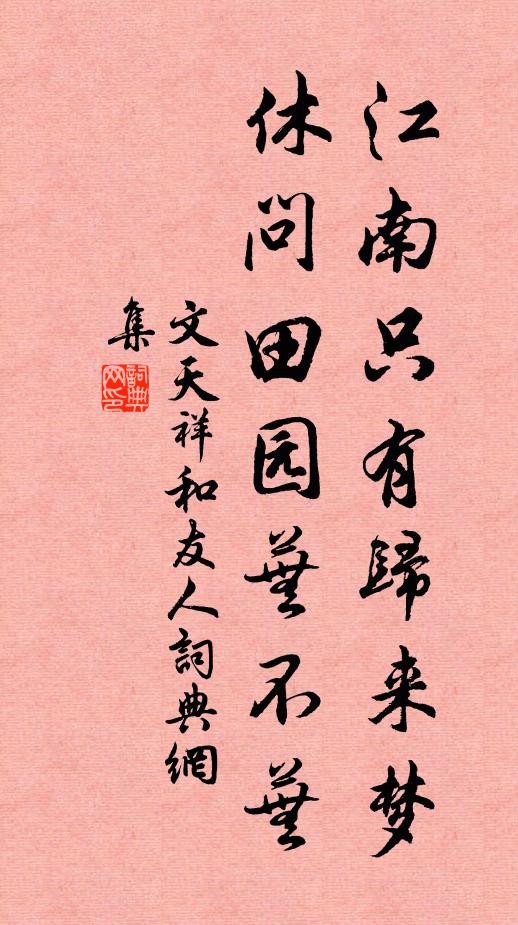 江南只有歸来梦
休问田园蕪不蕪
文天祥和友人詞典網
集
詞典网印